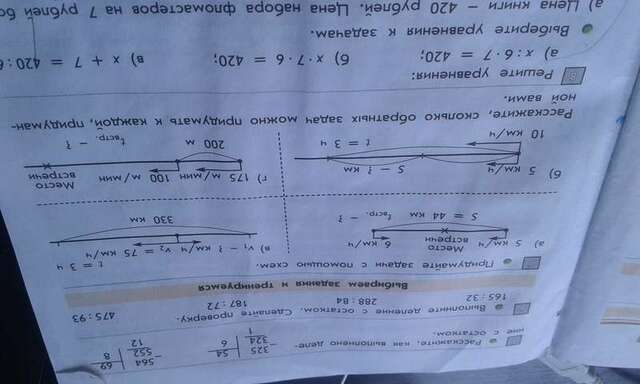 Расскажите, как выполнено деле-
ние с остатком.
325 | 54
324 | 6
1
564 | 69
552 | 8
12
Выполните деление с остатком. Сделайте проверку.
165 : 32 288 : 84 187 : 72 475 : 93
Выбираем задания и тренируемся
Придумайте задачи с помощью схем.
а) 5 км/ч Место встречи 6 км/ч
S = 44 км tвстр. – ?
в) v₁ – ? км/ч v₂ = 75 км/ч t = 3 ч
330 км
б) 5 км/ч
S – ? км
10 км/ч t = 3 ч
г) 175 м/мин 100 м/мин Место встречи
200 м tвстр. – ?
Расскажите, сколько обратных задач можно придумать к каждой, придуман-
ной вами.
8 Решите уравнения:
а) x : 6 · 7 = 420; б) x · 7 · 6 = 420; в) x + 7 = 420 : 6
Выберите уравнения к задачам.
а) Цена книги – 420 рублей. Цена набора фломастеров на 7 рублей бо